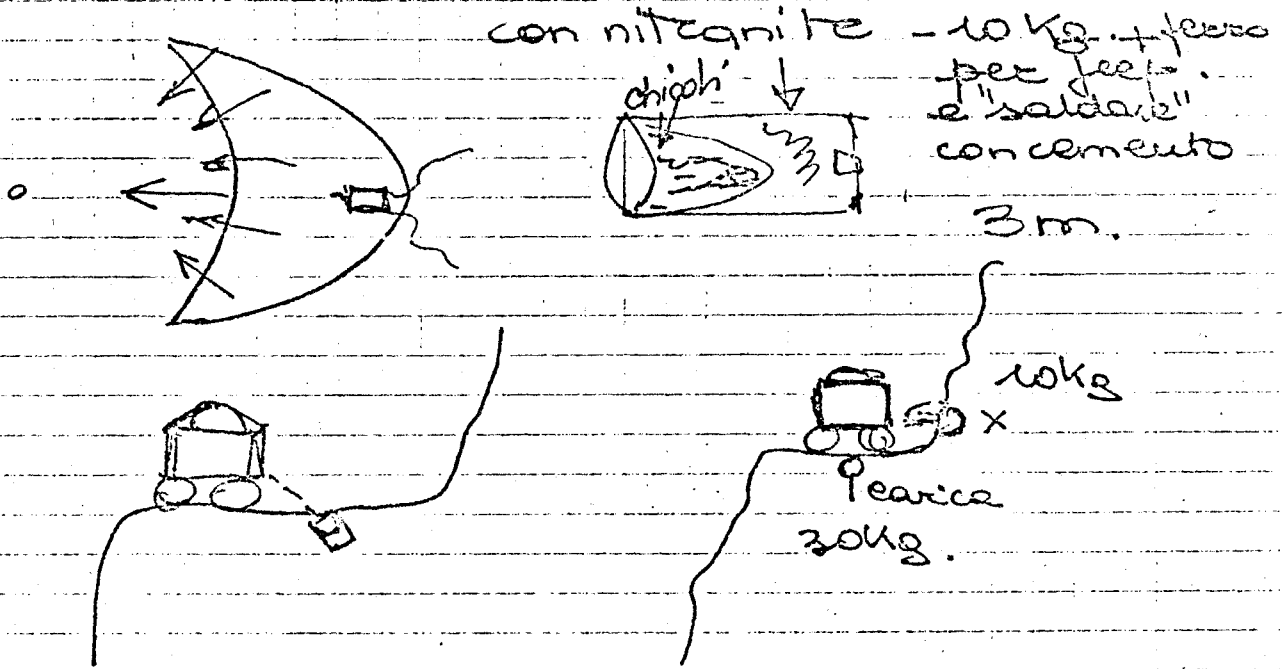 con nitranite - 10 Kg. + ferro
per jeep.
chiodi
e "saldare"
con cemento
3 m.
10Kg
x
carica
30Kg.